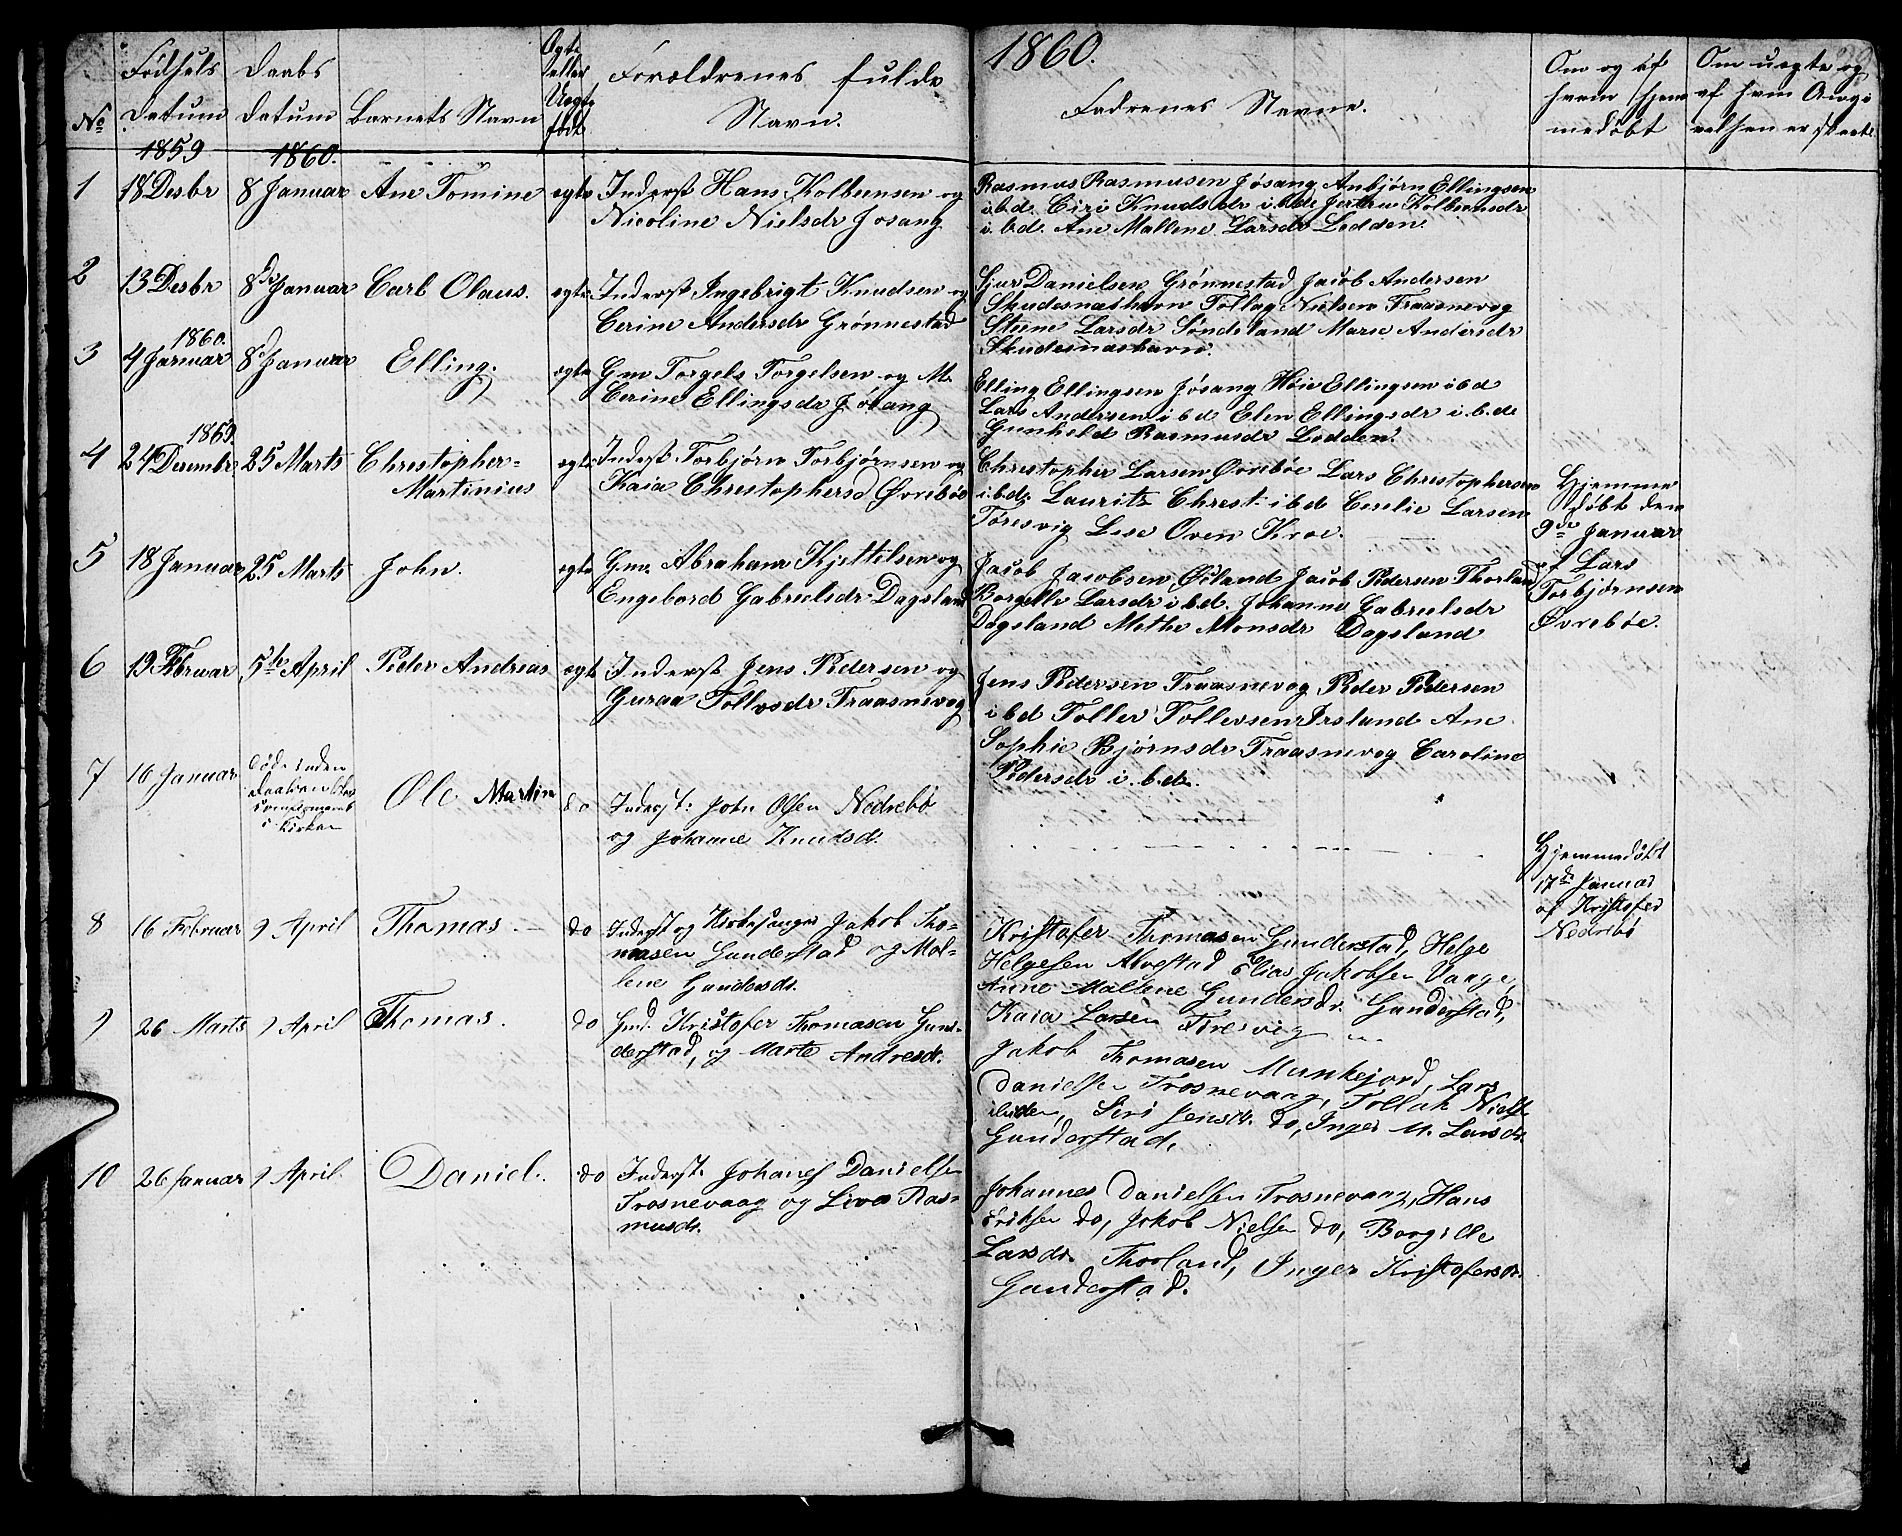 1860.
No
Fødsels Datum
Daabs Datum
Barnets Navn
Ægte eller Uægte født
Forældrenes fulde Navn.
Fadrenes Navne.
Om og af hvem hjem medøbt
Om uægte og af hvem Angi velsen er skeet
1859
1860.
1 18 Desbr 8 Januar Ane Tomine ægte Inderst Hans Kolbensen og
Nicoline Nielsdr Jøsang
Rasmus Rasmusen Jøsang Anbjørn Ellingsen
i.b.d. Ciri Knudsdr i.bde Jertru Kolbensdr
i.b.d. Ane Mallene Larsdr Lodden.
2 13 Desbr 8de Januar Carl Olaus. ægte Inderst Ingebrigt Knudsen og
Cerine Andersdr Grønnestad
Sjur Danielsen Grønnestad Jacob Andersen
Skudesnæshavn Tollag Nielsen Traasnevog
Steene Larsdr Søndeland Marie Andersdr
Skudesnæshavn.
1860.
3 4 Januar 8d Januar Elling. ægte Gm Torgels Torgelsen og M.
Cerine Ellingsdr Jøsang
Elling Ellingsen Jøsang Høie Ellingsen i b d
Lars Andersen i b d Elen Ellingsdr i.b.de
Gunheld Rasmusdr Lodden.
1859.
4 24 Desembr 25 Marts Chrestopher=
Martinius
ægte Inderst Torbjørn Torbjørnsen og
Kaia Chrestophersd Øvrebøe
Chrestopher Larsen Øvrebøe Lars Chrestophersen
i.b.d. Lauritz Chrest. i.b.d Ceselie Larsen
Toresvig Lese Oven Kroe.
Hjemme
døbt den
9de Januar
af Lars
Torbjørnsen
Øvrebøe.
5 18 Januar 25 Marts John. ægte Gm. Abraham Kjettelsen og
Engebord Gabrielsdr Dagsland
Jacob Jacobsen Øiland Jacob Pedersen Thorland
Borgelle Larsdr i.b.d. Johanne Gabrielsdr
Dagsland Methe Monsdr Dagsland
6 19 Februar 5te April Peder Andreas ægte Inderst Jens Pedersen og
Guraa Tollvsdr Traasnevog
Jens Pedersen Traasnevog Peder Pedersen
i b d Tollev Tollevsen Irsland Ane
Sophie Bjørnsdr Traasnevog Caroline
Pedersdr i.b.de.
7 16 Januar Død inden
i Kirken
Ole Martin do Inderst: John Olsen Nedrebø
og Johanne Knudsdr.
Hjemmedøbt
17de Januar
af Kristofer
Nedrebø
8 16 Februar 9 April Thomas. do Inderst og Kirkesanger Jakob Tho-
masen Gunderstad og Mal-
lene Gundersdr.
Kristofer Thomasen Gunderstad, Helge
Helgesen Alvestad Elias Jakobsen Vaage,
Anne Mallene Gundersdr. Gunderstad,
Kaia Larsen Toresvig
9 26 Marts 9 April Thomas. do Gmd. Kristofer Thomasen Gun-
derstad, og Marte Andresdr.
Jakob Thomasen Munkejord, Lars
Danielsen Trosnevaag, Tollak Niels
ibiden, Siri Jensdr. do, Inger M. Larsdr.
Gunderstad.
10 26 Januar 9 April. Daniel. do Inderst. Johanes Danielsen
Trosnevaag og Liva Ras-
musdr.
Johannes Danielsen Trosnevaag, Hans
Eriksen do, Jakob Nielsen do, Borgille
Larsdr. Thorland, Inger Kristofersdr.
Gunderstad.